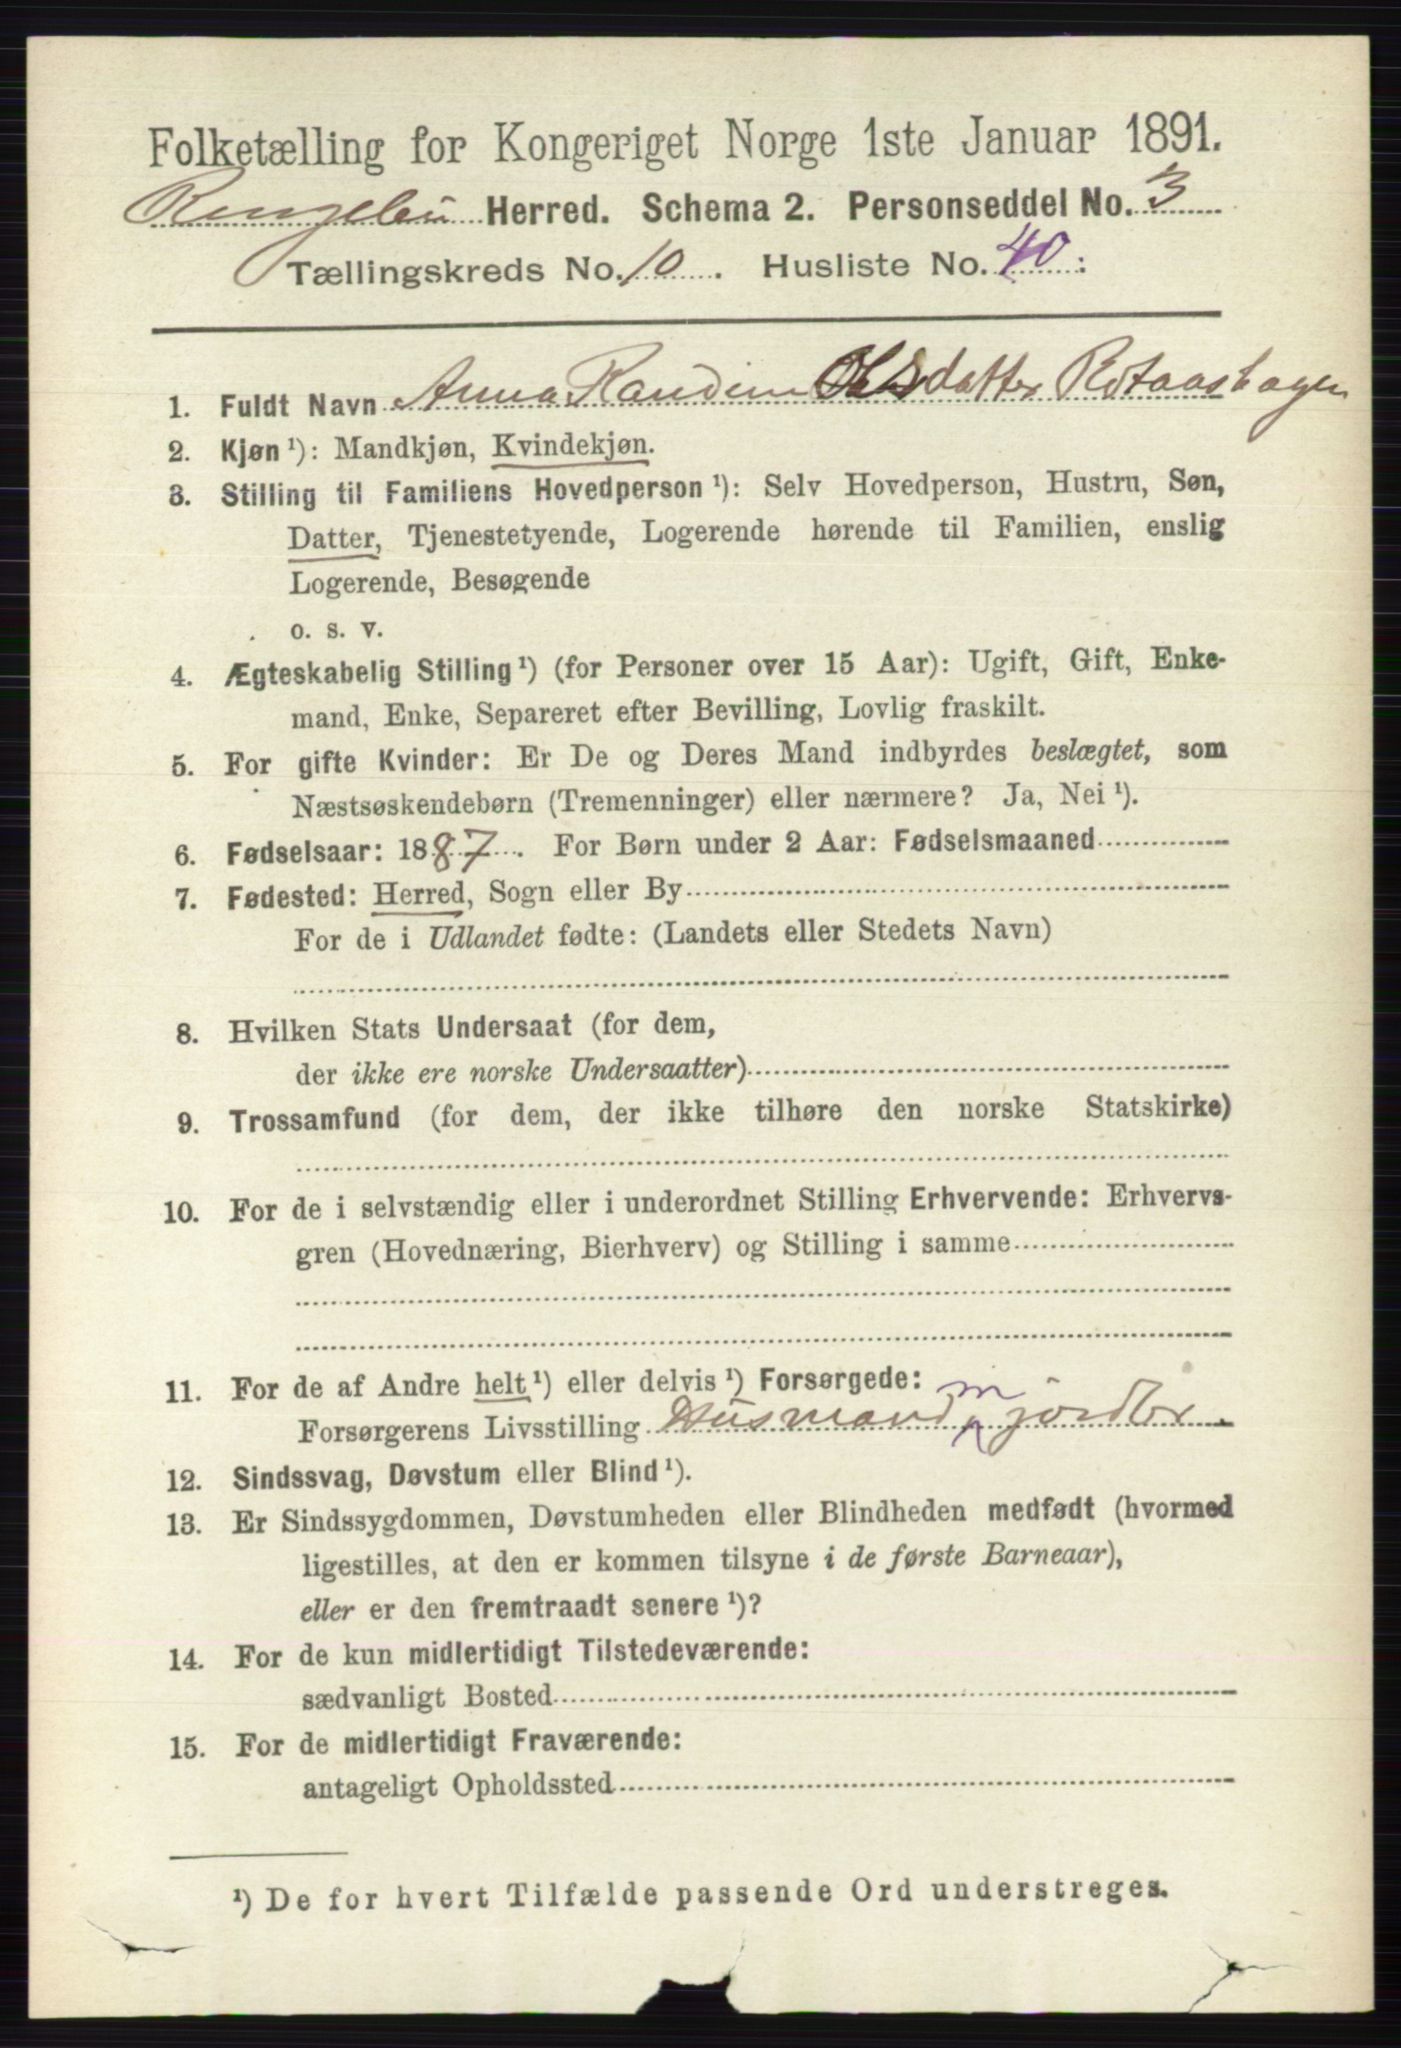 Folketælling for Kongeriget Norge 1ste Januar 1891.
Ringebu Herred. Schema 2. Personseddel No. 3
Tællingskreds No. 10. Husliste No. 40.
1. Fuldt Navn Anna Randine Olsdatter
2. Kjøn ¹): Mandkjøn, Kvindekjøn.
3. Stilling til Familiens Hovedperson ¹): Selv Hovedperson, Hustru, Søn,
Datter, Tjenestetyende, Logerende hørende til Familien, enslig
Logerende, Besøgende
o. s. v.
4. Ægteskabelig Stilling ¹) (for Personer over 15 Aar): Ugift, Gift, Enke-
mand, Enke, Separeret efter Bevilling, Lovlig fraskilt.
5. For gifte Kvinder: Er De og Deres Mand indbyrdes beslægtet, som
Næstsøskendebørn (Tremenninger) eller nærmere? Ja, Nei ¹).
6. Fødselsaar: 1887. For Børn under 2 Aar: Fødselsmaaned
7. Fødested: Herred, Sogn eller By
For de i Udlandet fødte: (Landets eller Stedets Navn)
8. Hvilken Stats Undersaat (for dem,
der ikke ere norske Undersaatter)
9. Trossamfund (for dem, der ikke tilhøre den norske Statskirke)
10. For de i selvstændig eller i underordnet Stilling Erhvervende: Erhvervs-
gren (Hovednæring, Bierhverv) og Stilling i samme
11. For de af Andre helt ¹) eller delvis ¹) Forsørgede:
Forsørgerens Livsstilling Husmand m jordbr.
12. Sindssvag, Døvstum eller Blind ¹).
13. Er Sindssygdommen, Døvstumheden eller Blindheden medfødt (hvormed
ligestilles, at den er kommen tilsyne i de første Barneaar),
eller er den fremtraadt senere ¹)?
14. For de kun midlertidigt Tilstedeværende:
sædvanligt Bosted
15. For de midlertidigt Fraværende:
antageligt Opholdssted
¹) De for hvert Tilfælde passende Ord understreges.